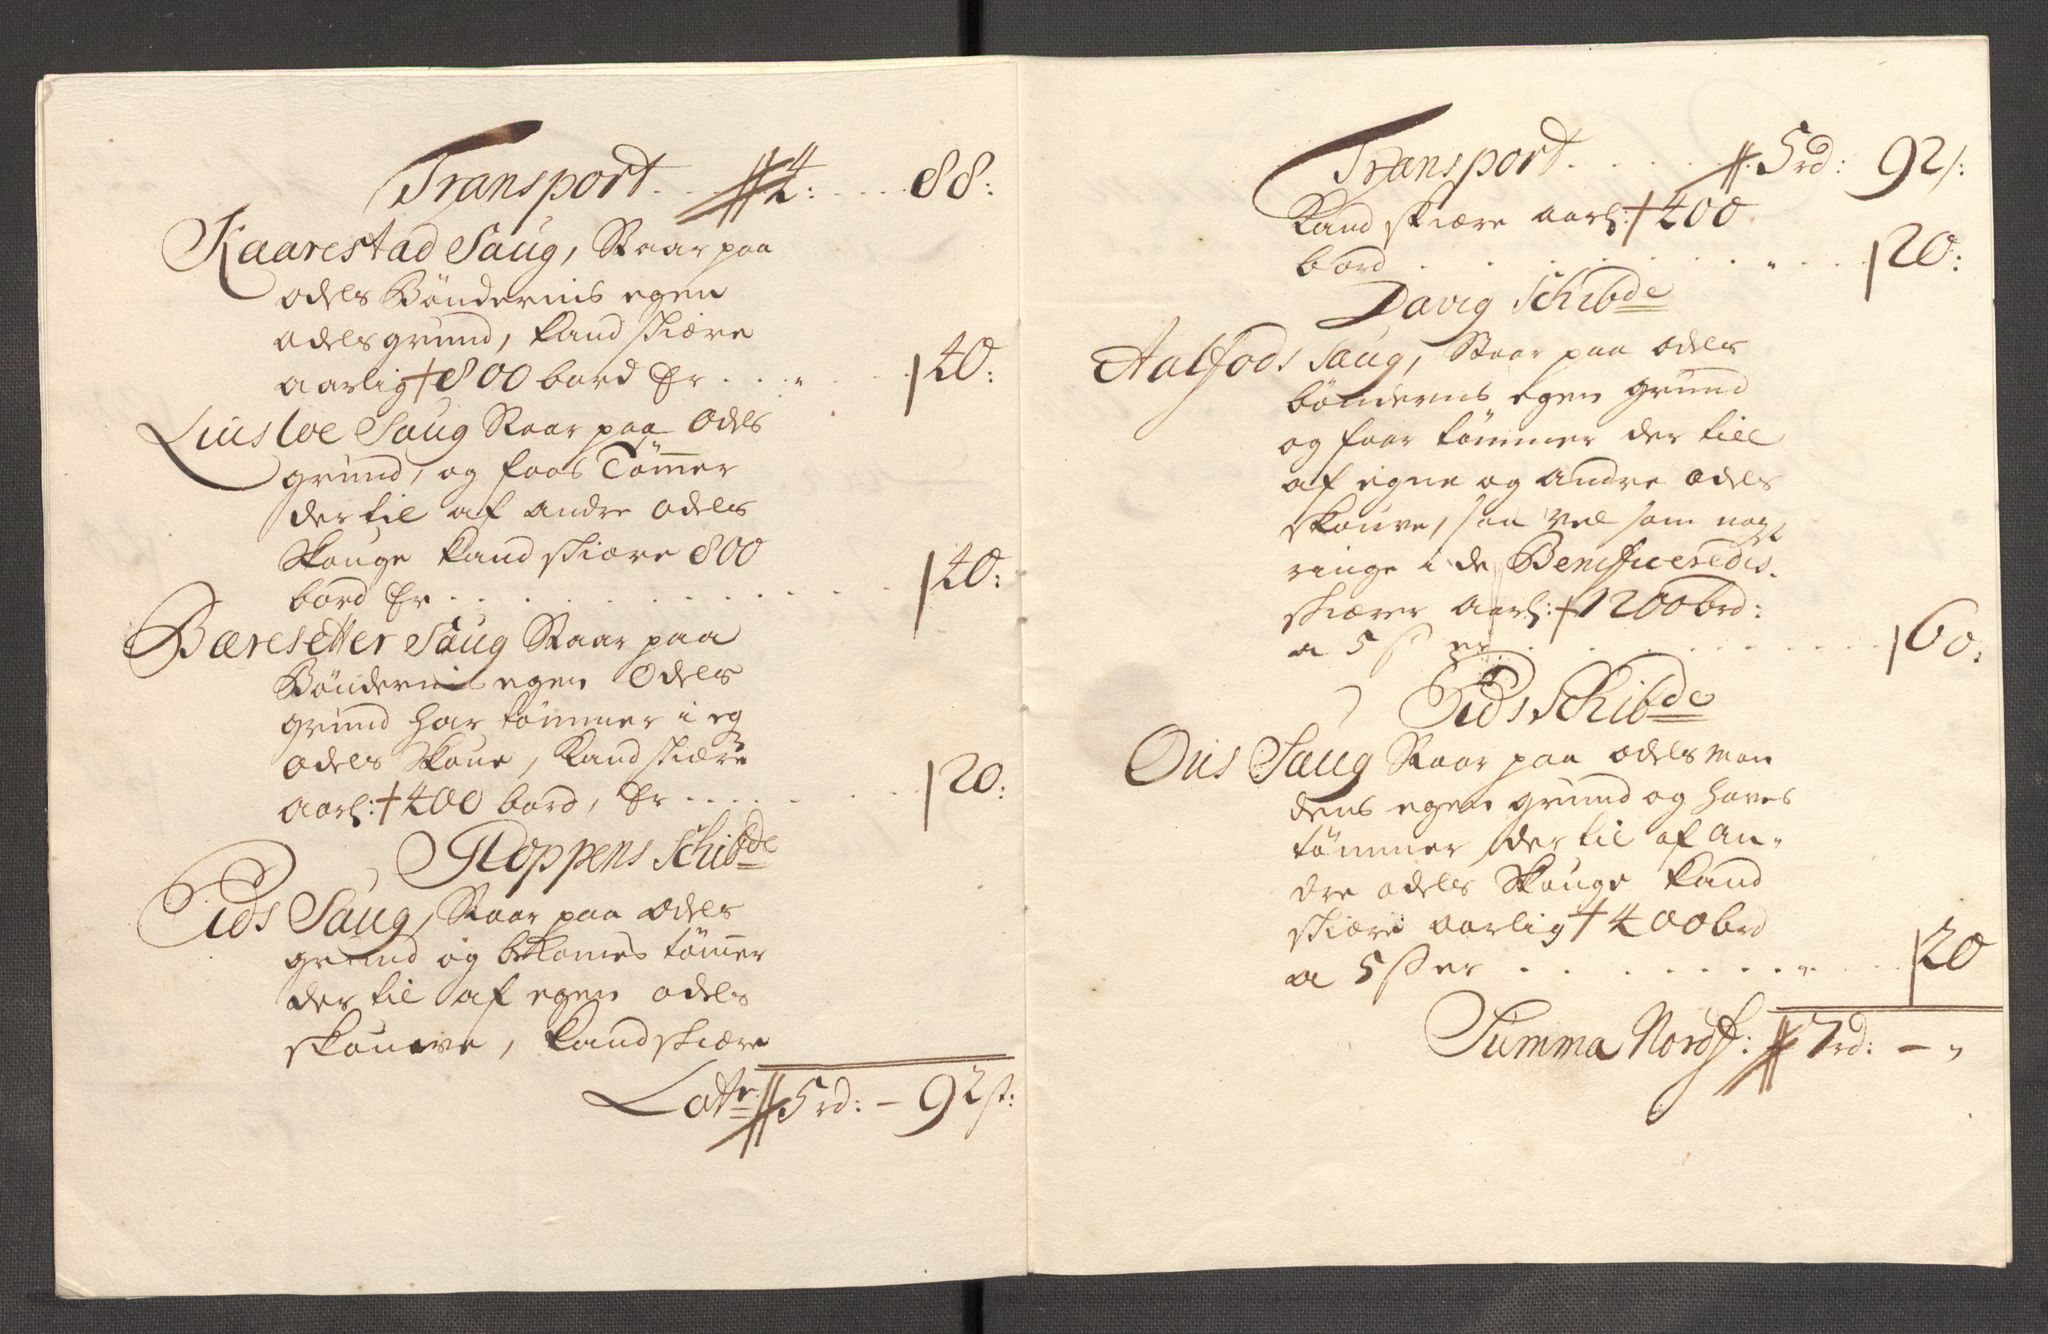 Transport . . # 4: . . . . 88:
Kaarestad Saug, Staar paa
odels Bøndernis egen
odelsgrund, kand skiære
aarlig + 800 bord Er . . . . . 40:
Saug Staar paa Odels
grund, og faaes Tømer
der til af andre odels
Skouge kand skiære 800
bord Er . . . . . . . . 40:
Bæresetter Saug Staar paa
Bøndernis egen Odels
grund har tømmer i eg
odels Skoue, Kand skiære
aarl: + 400 bord, Er . . . . . 20:
Gloppens Schibde
Eids Saug, Staar paa odels
grund og bekomes tømer
der til af egen odels
skouwe, kand skiære
Latr # 5 rd: – 92 s:
Transport . . . . # 5 rd: 92 s:
Kand skiære aarl: + 400
bord . . . . . . . . . 20:
Davig Schibde
Aalfods Saug, Staar paa odels
bønderns egen grund
og faar tømmer der till
af egne og andre odels
skouve, saa vel som nog
ringe i de Benificeredis.
skiærer aarl: + 1200 brd:
a 5 s er . . . . . . . . 60:
Eids Schibde
Ous Saug Staar paa odels man
dens egen grund og haves
tømmer der til af an-
dre odels Skouge kand
skiære aarlig + 400 brd
a 5 s er . . . . . . . . 20
Summa Nordf: # 7 rd: – "